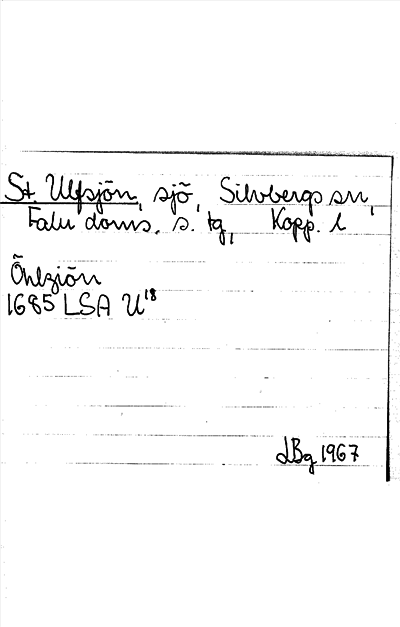 St. Ulfsjön, sjö, Silvbergs sn,
Falu doms. s. tg, Kopp. l
Öhlziön
1685 LSA U18
LBg 1967